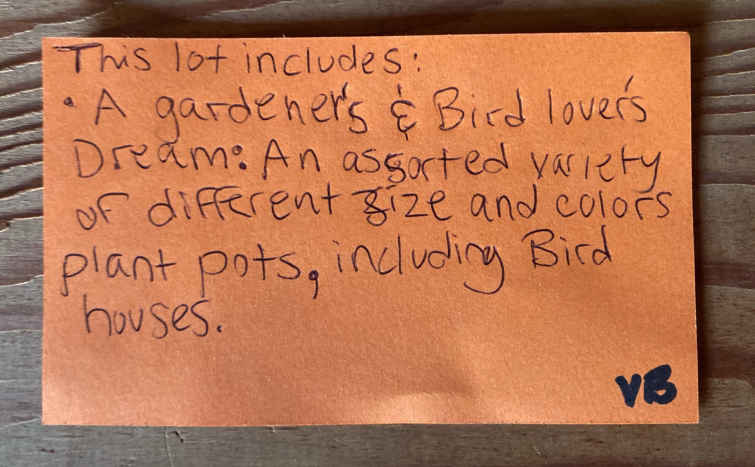 This lot includes:
• A gardener's & Bird lover's
Dream: An assorted variety
of different size and colors
plant pots, including Bird
houses.
VB